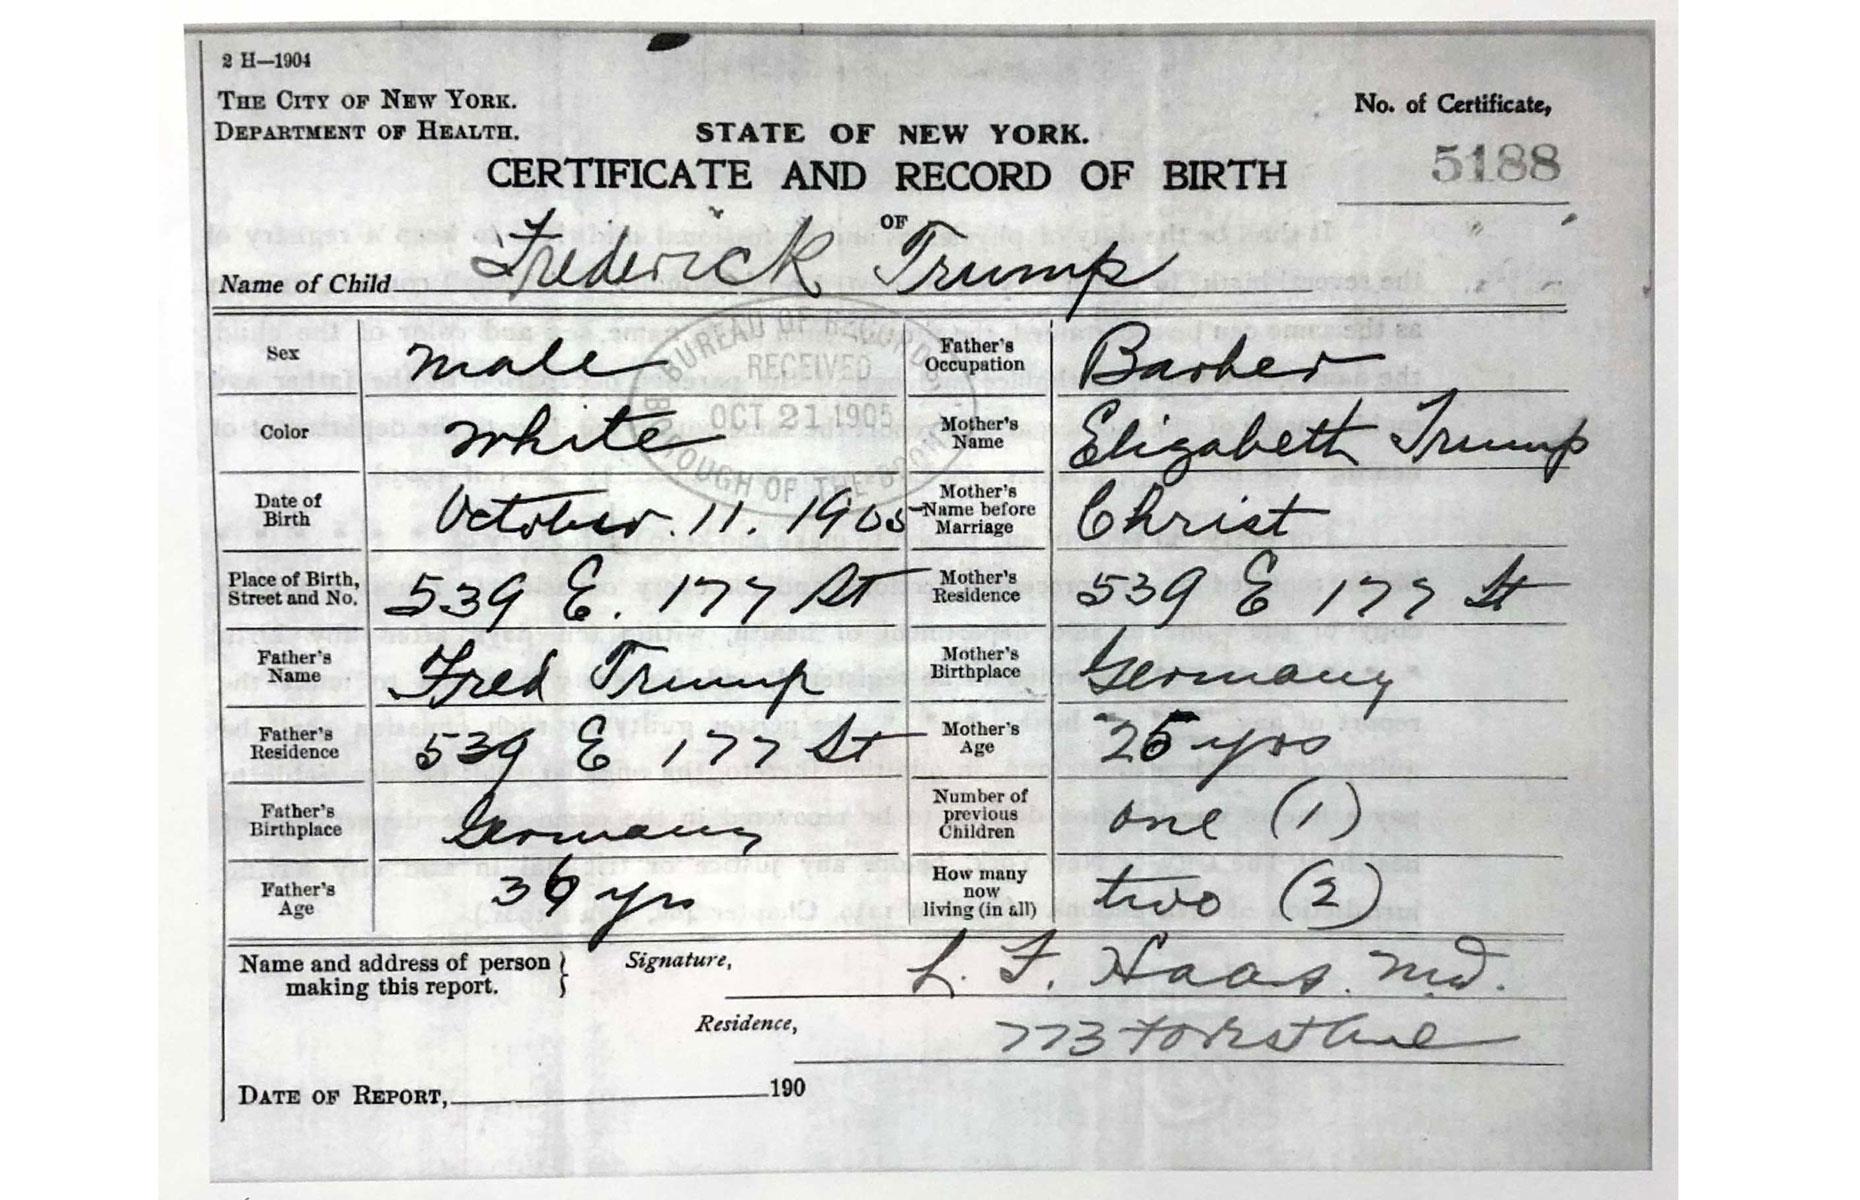 2 H—1904
THE CITY OF NEW YORK.
DEPARTMENT OF HEALTH.
No. of Certificate,
5188
STATE OF NEW YORK.
CERTIFICATE AND RECORD OF BIRTH
OF
Name of Child Frederick Trump
BUREAU OF RECORDS
RECEIVED
OCT 21 1905
BOROUGH OF THE BRONX
Sex male
Color white
Date of Birth October. 11. 1905
Place of Birth, Street and No. 539 E. 177 St
Father's Name Fred Trump
Father's Residence 539 E 177 St
Father's Birthplace Germany
Father's Age 36 yrs
Father's Occupation Barber
Mother's Name Elizabeth Trump
Mother's Name before Marriage Christ
Mother's Residence 539 E 177 St
Mother's Birthplace Germany
Mother's Age 25 yrs
Number of previous Children one (1)
How many now living (in all) two (2)
Name and address of person making this report.
Signature, L. F. Haas. M.D.
Residence, 773 Forest Ave
DATE OF REPORT, 190